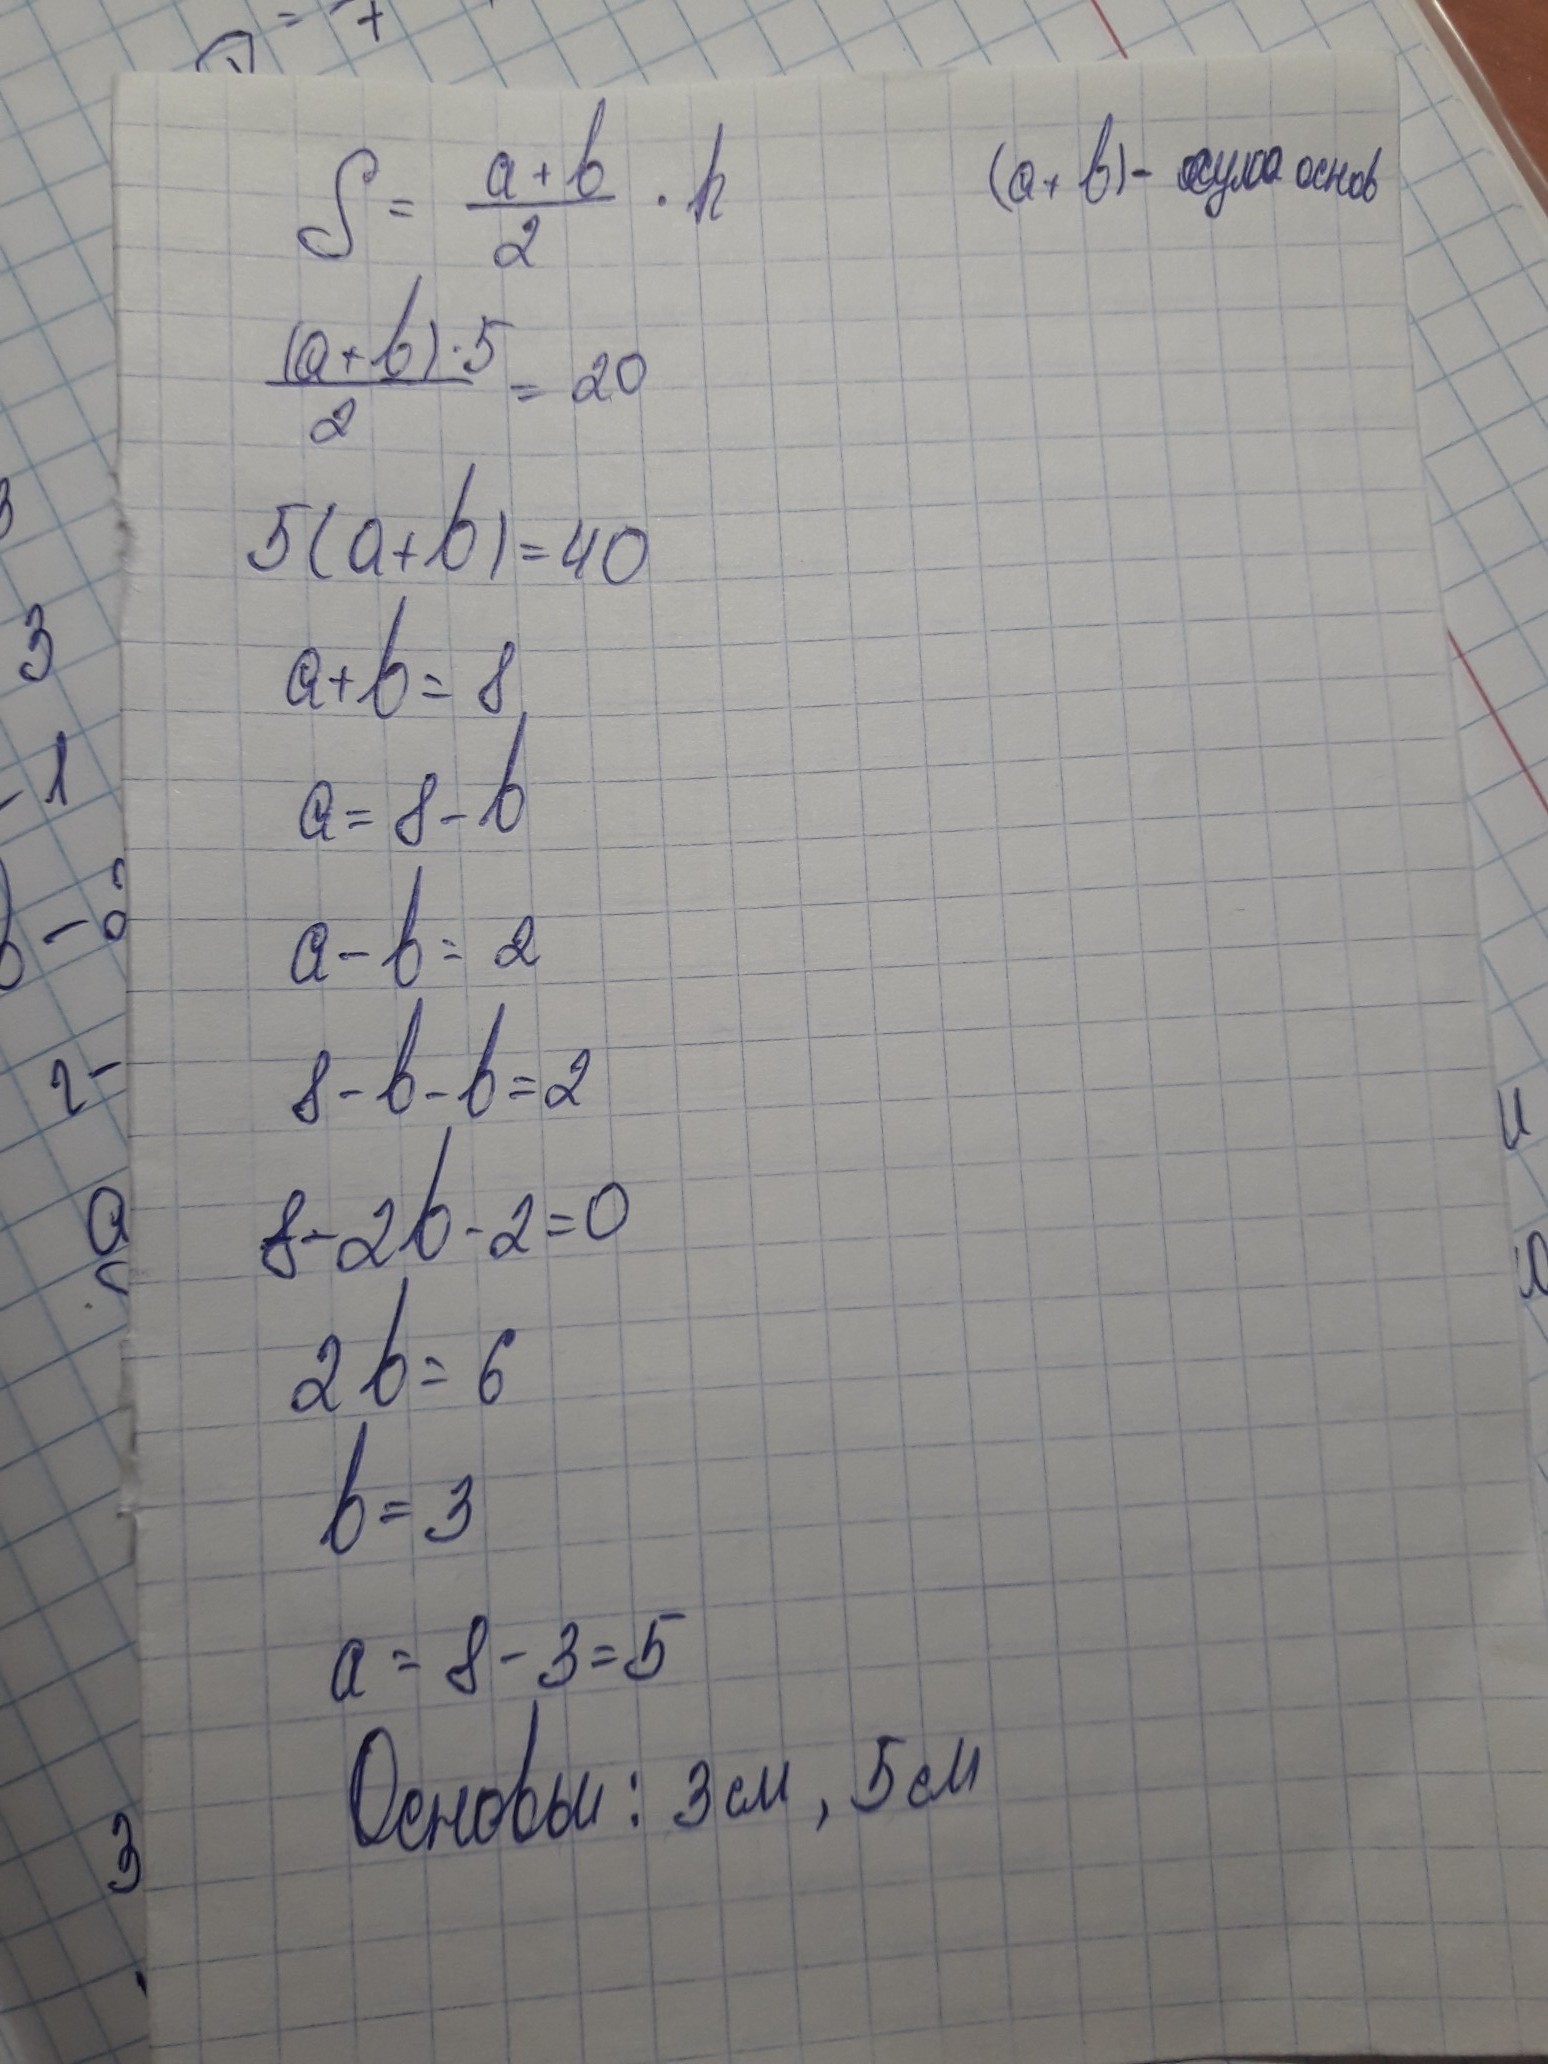 S = (a+b)/2 · h
(a+b) - сума основ
(a+b)·5/2 = 20
5(a+b)=40
a+b=8
a=8-b
a-b=2
8-b-b=2
8-2b-2=0
2b=6
b=3
a=8-3=5
Основы: 3см, 5см
3
- 1
2-
a
3